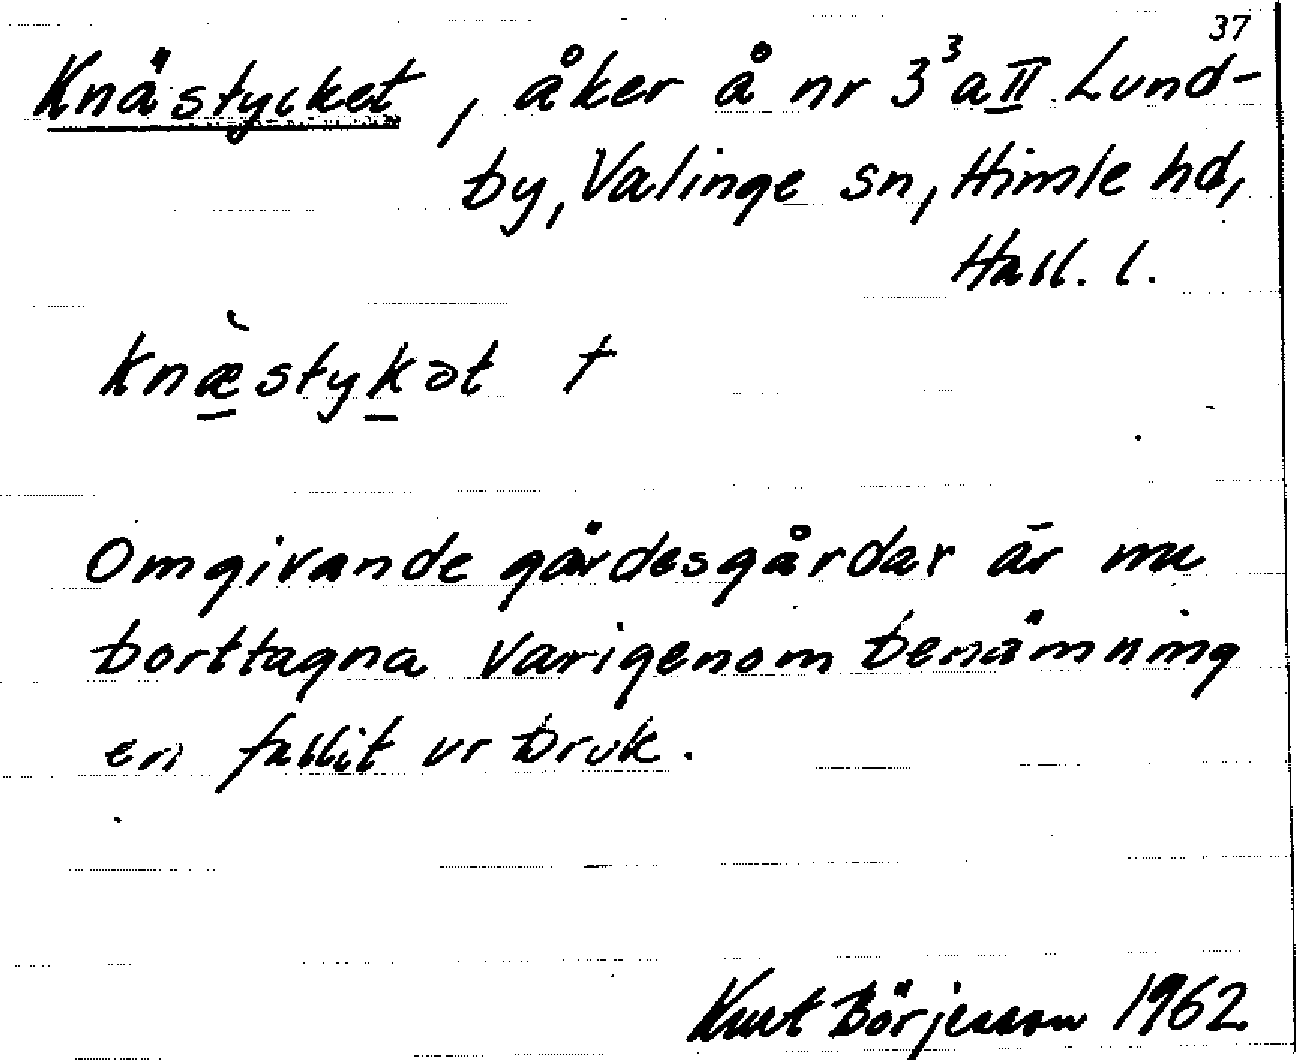 37
Knästycket, åker å nr 3³a II Lund-
by, Valinge sn, Himle hd,
Hall. l.
knæ̀stykət †
Omgivande gärdesgårdar är nu
borttagna varigenom benämning
en fallit ur bruk.
Kurt Börjesson 1962